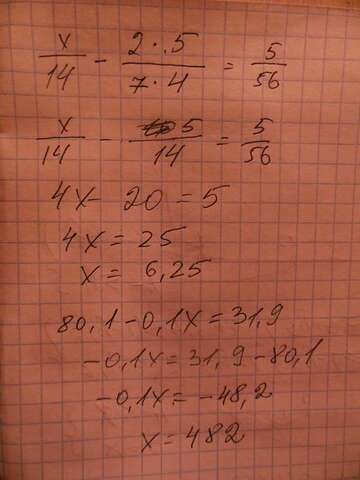 x/14 - 2·5/7·4 = 5/56
x/14 - 5/14 = 5/56
4x - 20 = 5
4x = 25
x = 6,25
80,1 - 0,1x = 31,9
-0,1x = 31,9 - 80,1
-0,1x = -48,2
x = 482